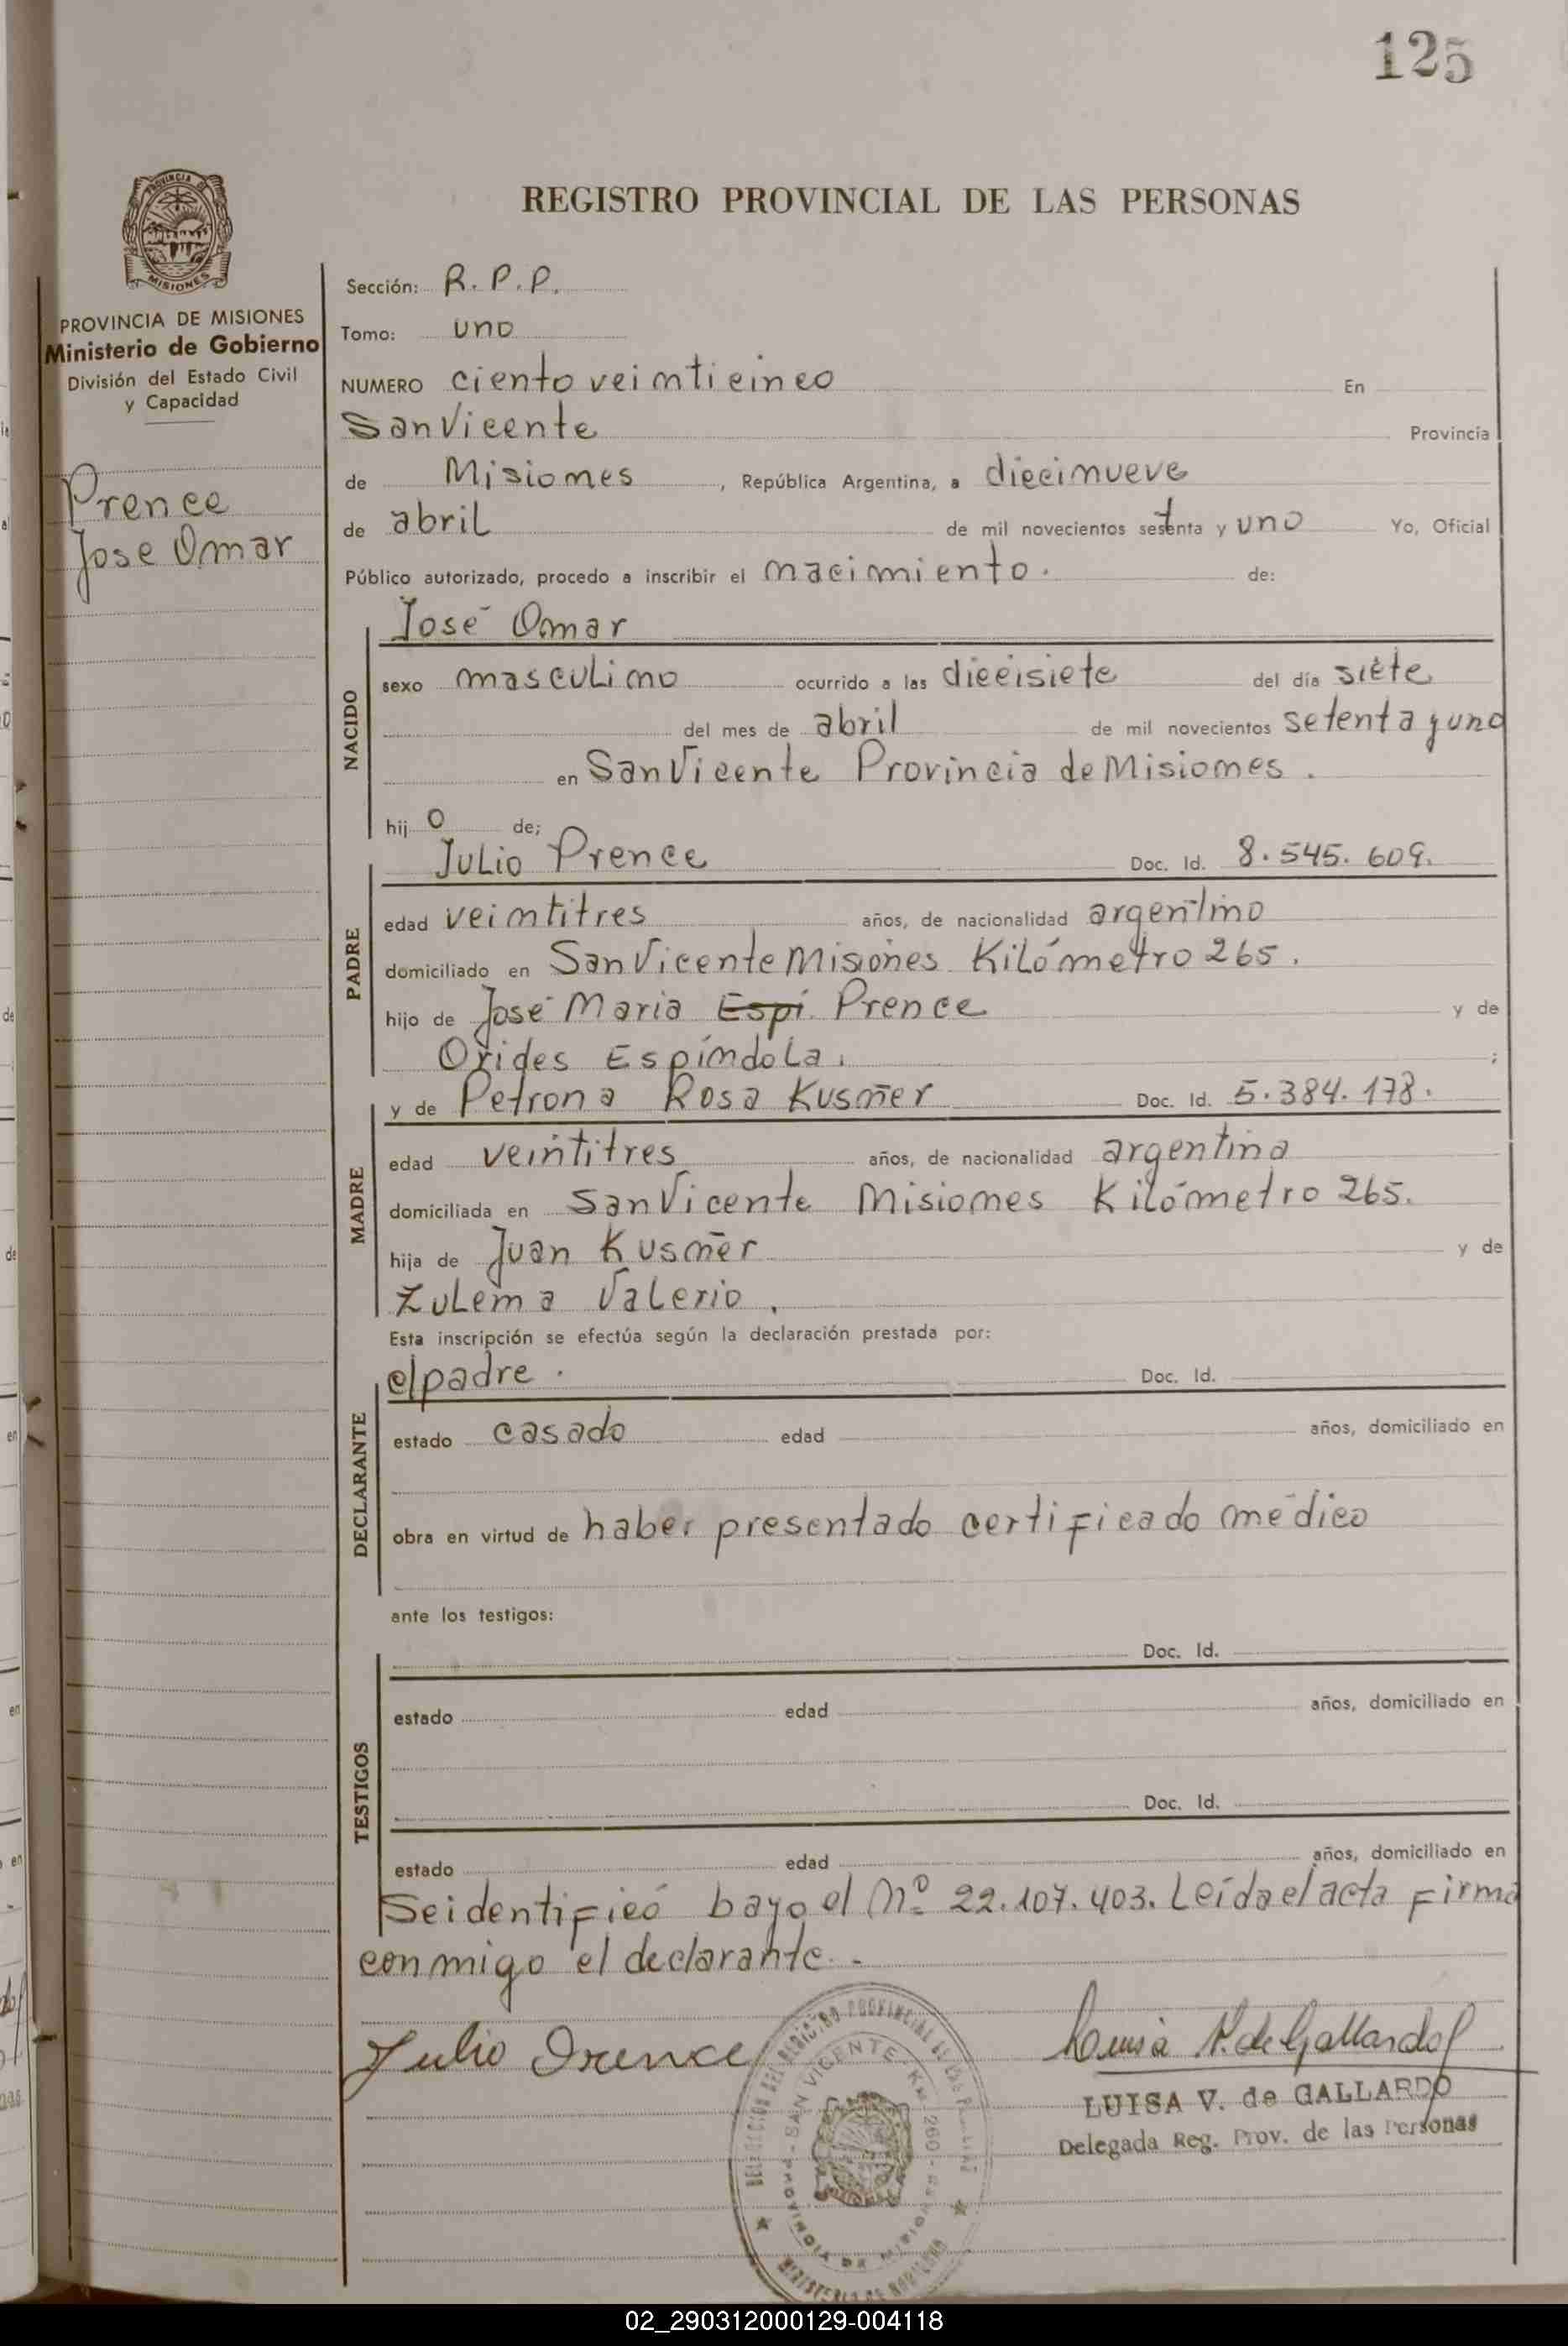 125
PROVINCIA DE
MISIONES
REGISTRO PROVINCIAL DE LAS PERSONAS
PROVINCIA DE MISIONES
Ministerio de Gobierno
División del Estado Civil
y Capacidad
Prence
Jose Omar
Sección: R. P. P.
Tomo: uno
NUMERO ciento veinticinco En
San Vicente Provincia
de Misiones, República Argentina, a diecinueve
de abril de mil novecientos setenta y uno Yo, Oficial
Público autorizado, procedo a inscribir el nacimiento. de:
NACIDO
José Omar
sexo masculino ocurrido a las diecisiete del día siete
del mes de abril de mil novecientos setenta y uno
en San Vicente Provincia de Misiones.
hij o de;
PADRE
Julio Prence Doc. Id. 8.545.609.
edad veintitres años, de nacionalidad argentino
domiciliado en San Vicente Misiones Kilómetro 265.
hijo de José Maria Espi Prence y de
Orides Espíndola. ;
MADRE
y de Petrona Rosa Kusner Doc. Id. 5.384.178.
edad veintitres años, de nacionalidad argentina
domiciliada en San Vicente Misiones Kilómetro 265.
hija de Juan Kusner y de
Zulema Valerio.
Esta inscripción se efectúa según la declaración prestada por:
DECLARANTE
el padre. Doc. Id.
estado casado edad años, domiciliado en
obra en virtud de haber presentado certificado médico
ante los testigos:
TESTIGOS
Doc. Id.
estado edad años, domiciliado en
Doc. Id.
estado edad años, domiciliado en
Se identificó bayo el Nº 22.107.403. Leída el acta firma
conmigo el declarante.-
Julio Prence
Luisa V. de Gallardo
LUISA V. de GALLARDO
Delegada Reg. Prov. de las Personas
DELEGACION DEL REGISTRO PROVINCIAL DE LAS PERSONAS
SAN VICENTE - Km 260
PROVINCIA DE MISIONES
MINISTERIO DE GOBIERNO
02_290312000129-004118